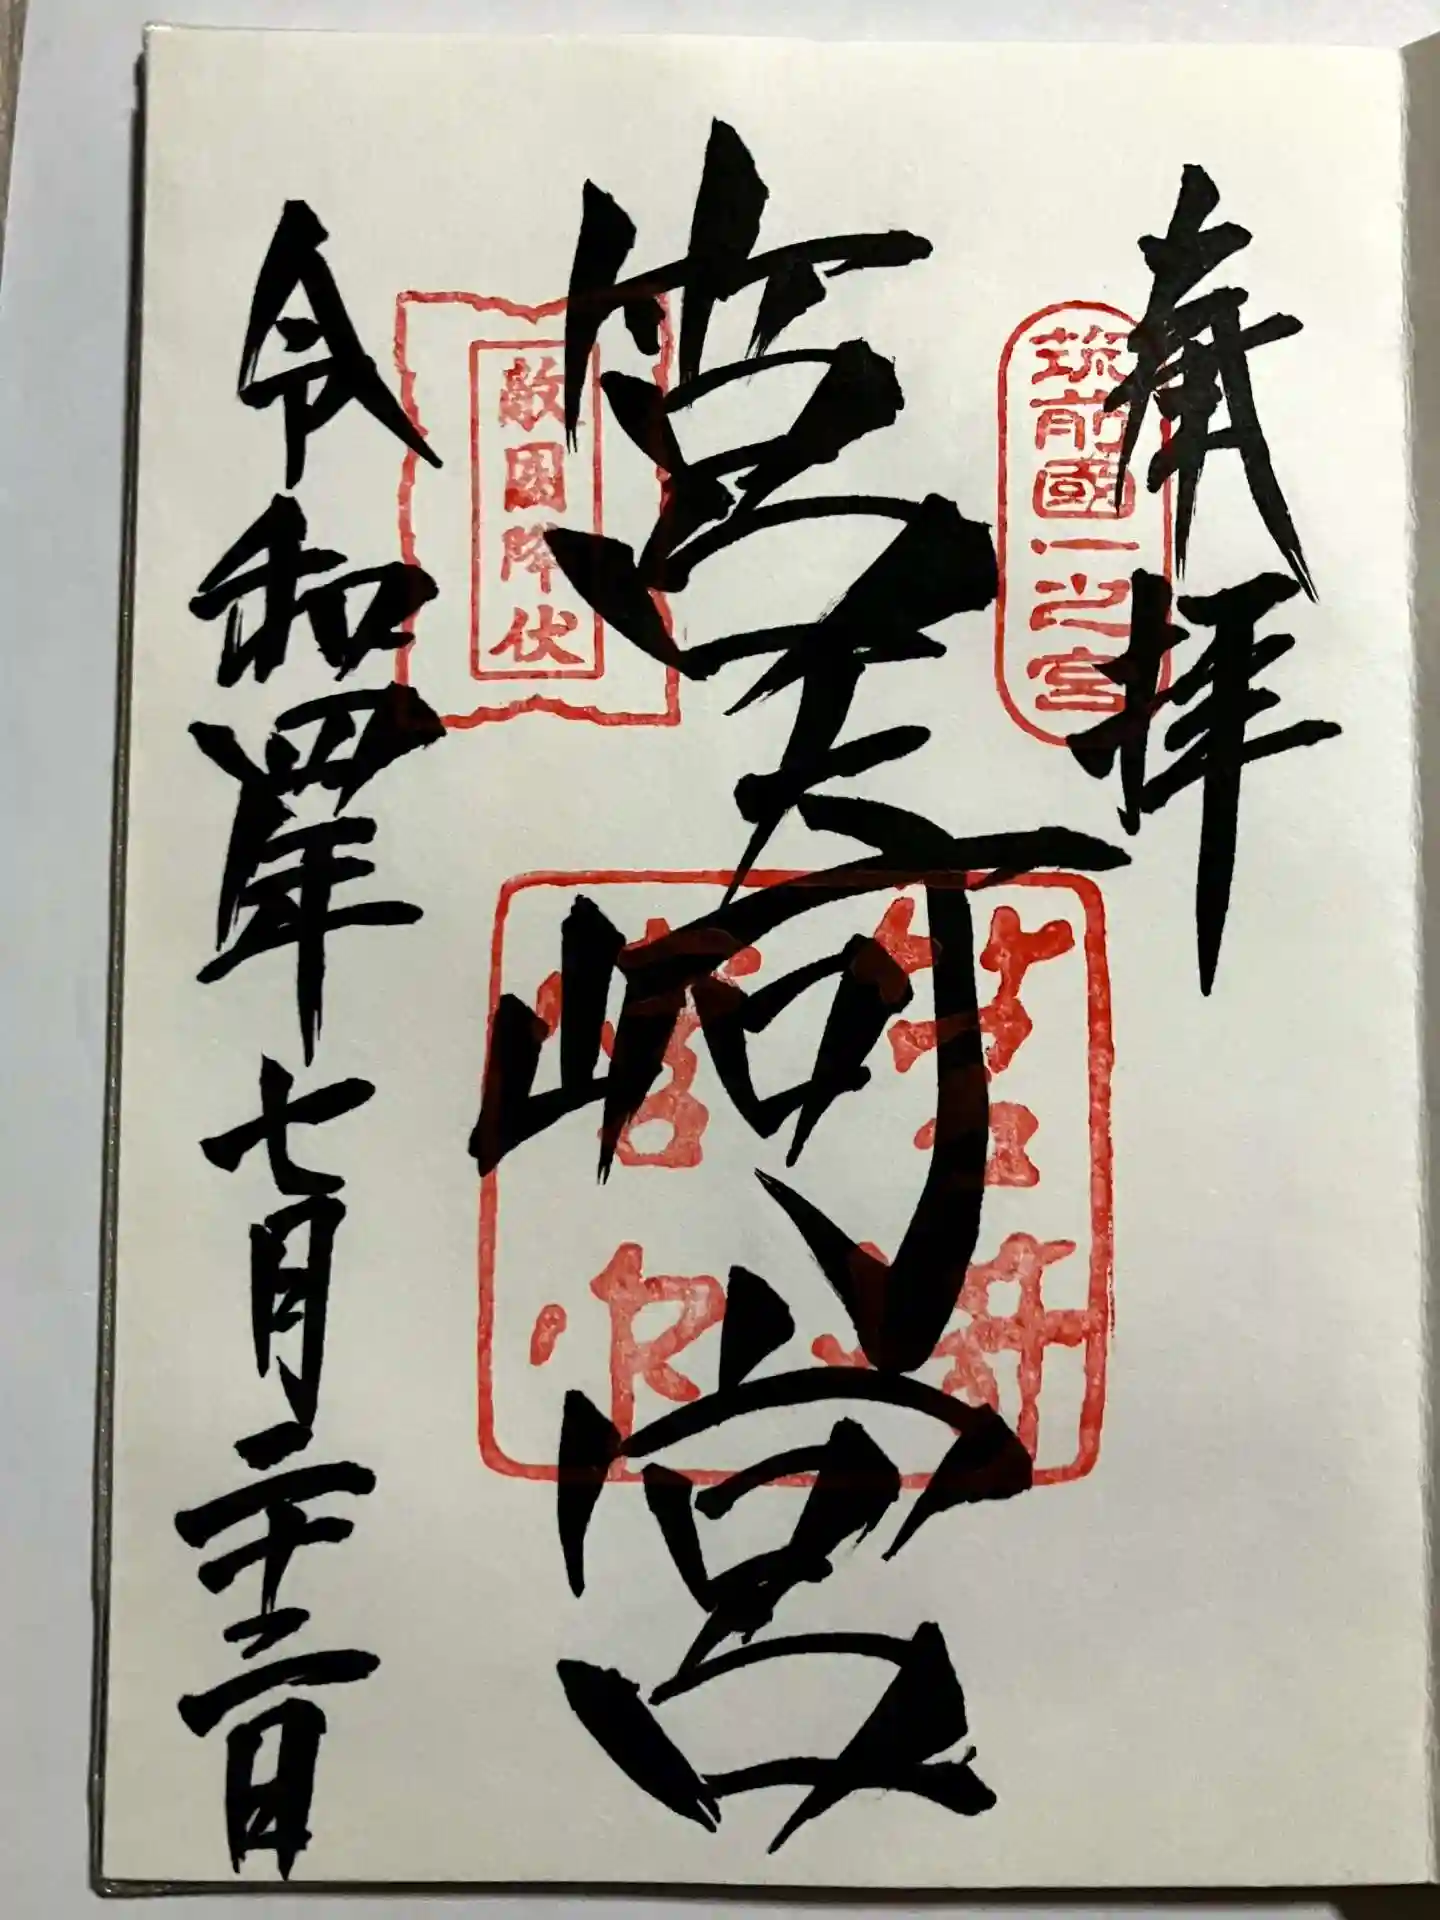 奉拝
筑前國一之宮
筥崎宮
筥崎
宮印
敵國降伏
令和四年七月二十二日